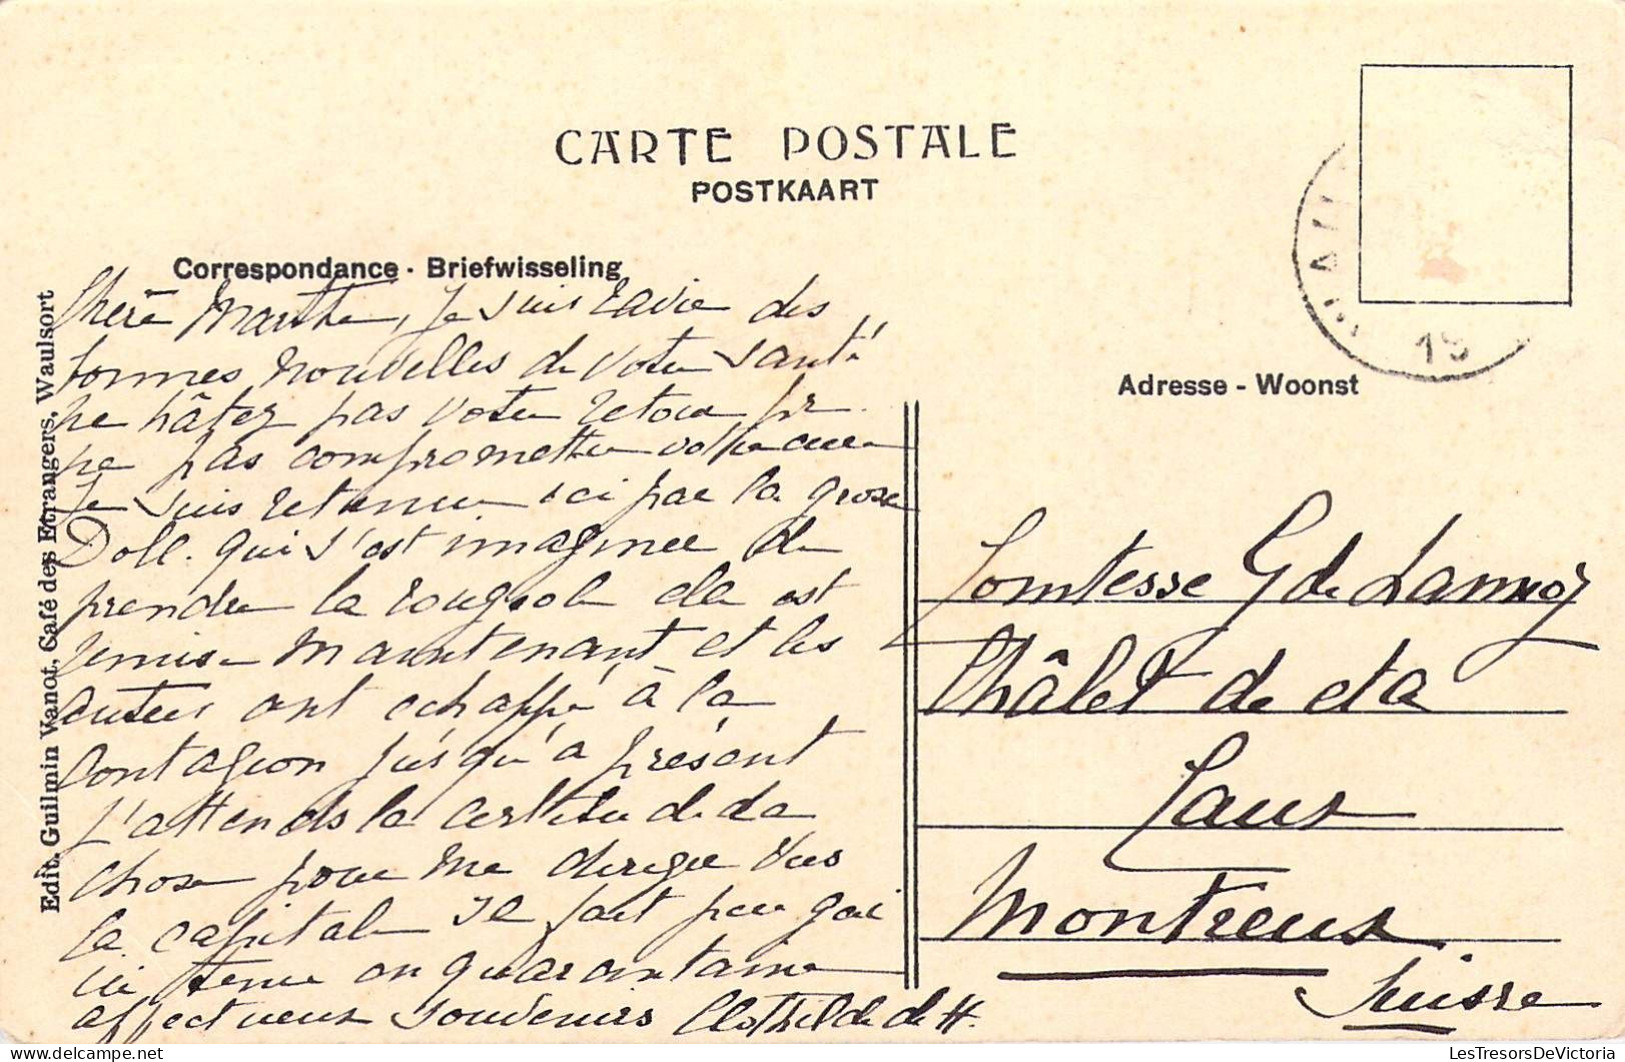 CARTE POSTALE
POSTKAART
Correspondance - Briefwisseling
Adresse - Woonst
Edit. Guilmin Wanot, Café des Etrangers, Waulsort
Chère Marthe, Je suis ravie des
bonnes nouvelles de votre santé
ne hâtez pas votre retour pr
ne pas compromettre votre cure
Je suis retenue ici par la grosse
Doll. qui s'est imaginée de
prendre la rougeole elle est
remise maintenant et les
autres ont echappé à la
contagion jusqu'à présent
J'attends la certitude de la
chose pour me diriger vers
la capitale Il fait peu gai
ici tenue en quarantaine
affectueux souvenirs Clothilde de H.
Comtesse G de Lannoy
Châlet de
Montreux
Suisse
19
LesTresorsDeVictoria